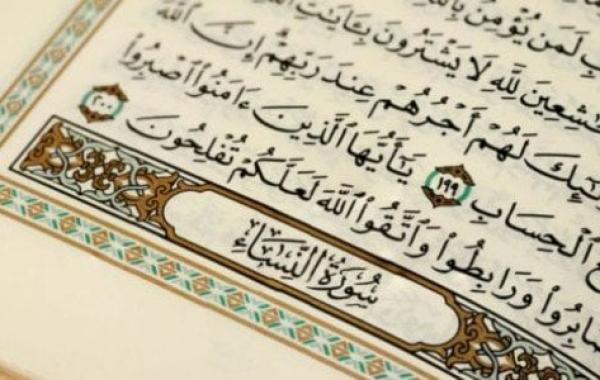 لَمَن يُؤْمِنُ
لِلَّهِ لَا يَشْتَرُونَ بِـَٔايَٰتِ
لَهُمْ أَجْرُهُمْ عِندَ رَبِّهِمْ إِنَّ ٱللَّهَ
ٱلْحِسَابِ ١٩٩ يَٰٓأَيُّهَا ٱلَّذِينَ ءَامَنُوا۟ ٱصْبِرُوا۟
وَرَابِطُوا۟ وَٱتَّقُوا۟ ٱللَّهَ لَعَلَّكُمْ تُفْلِحُونَ ٢٠٠
سُورَةُ النِّسَاءِ